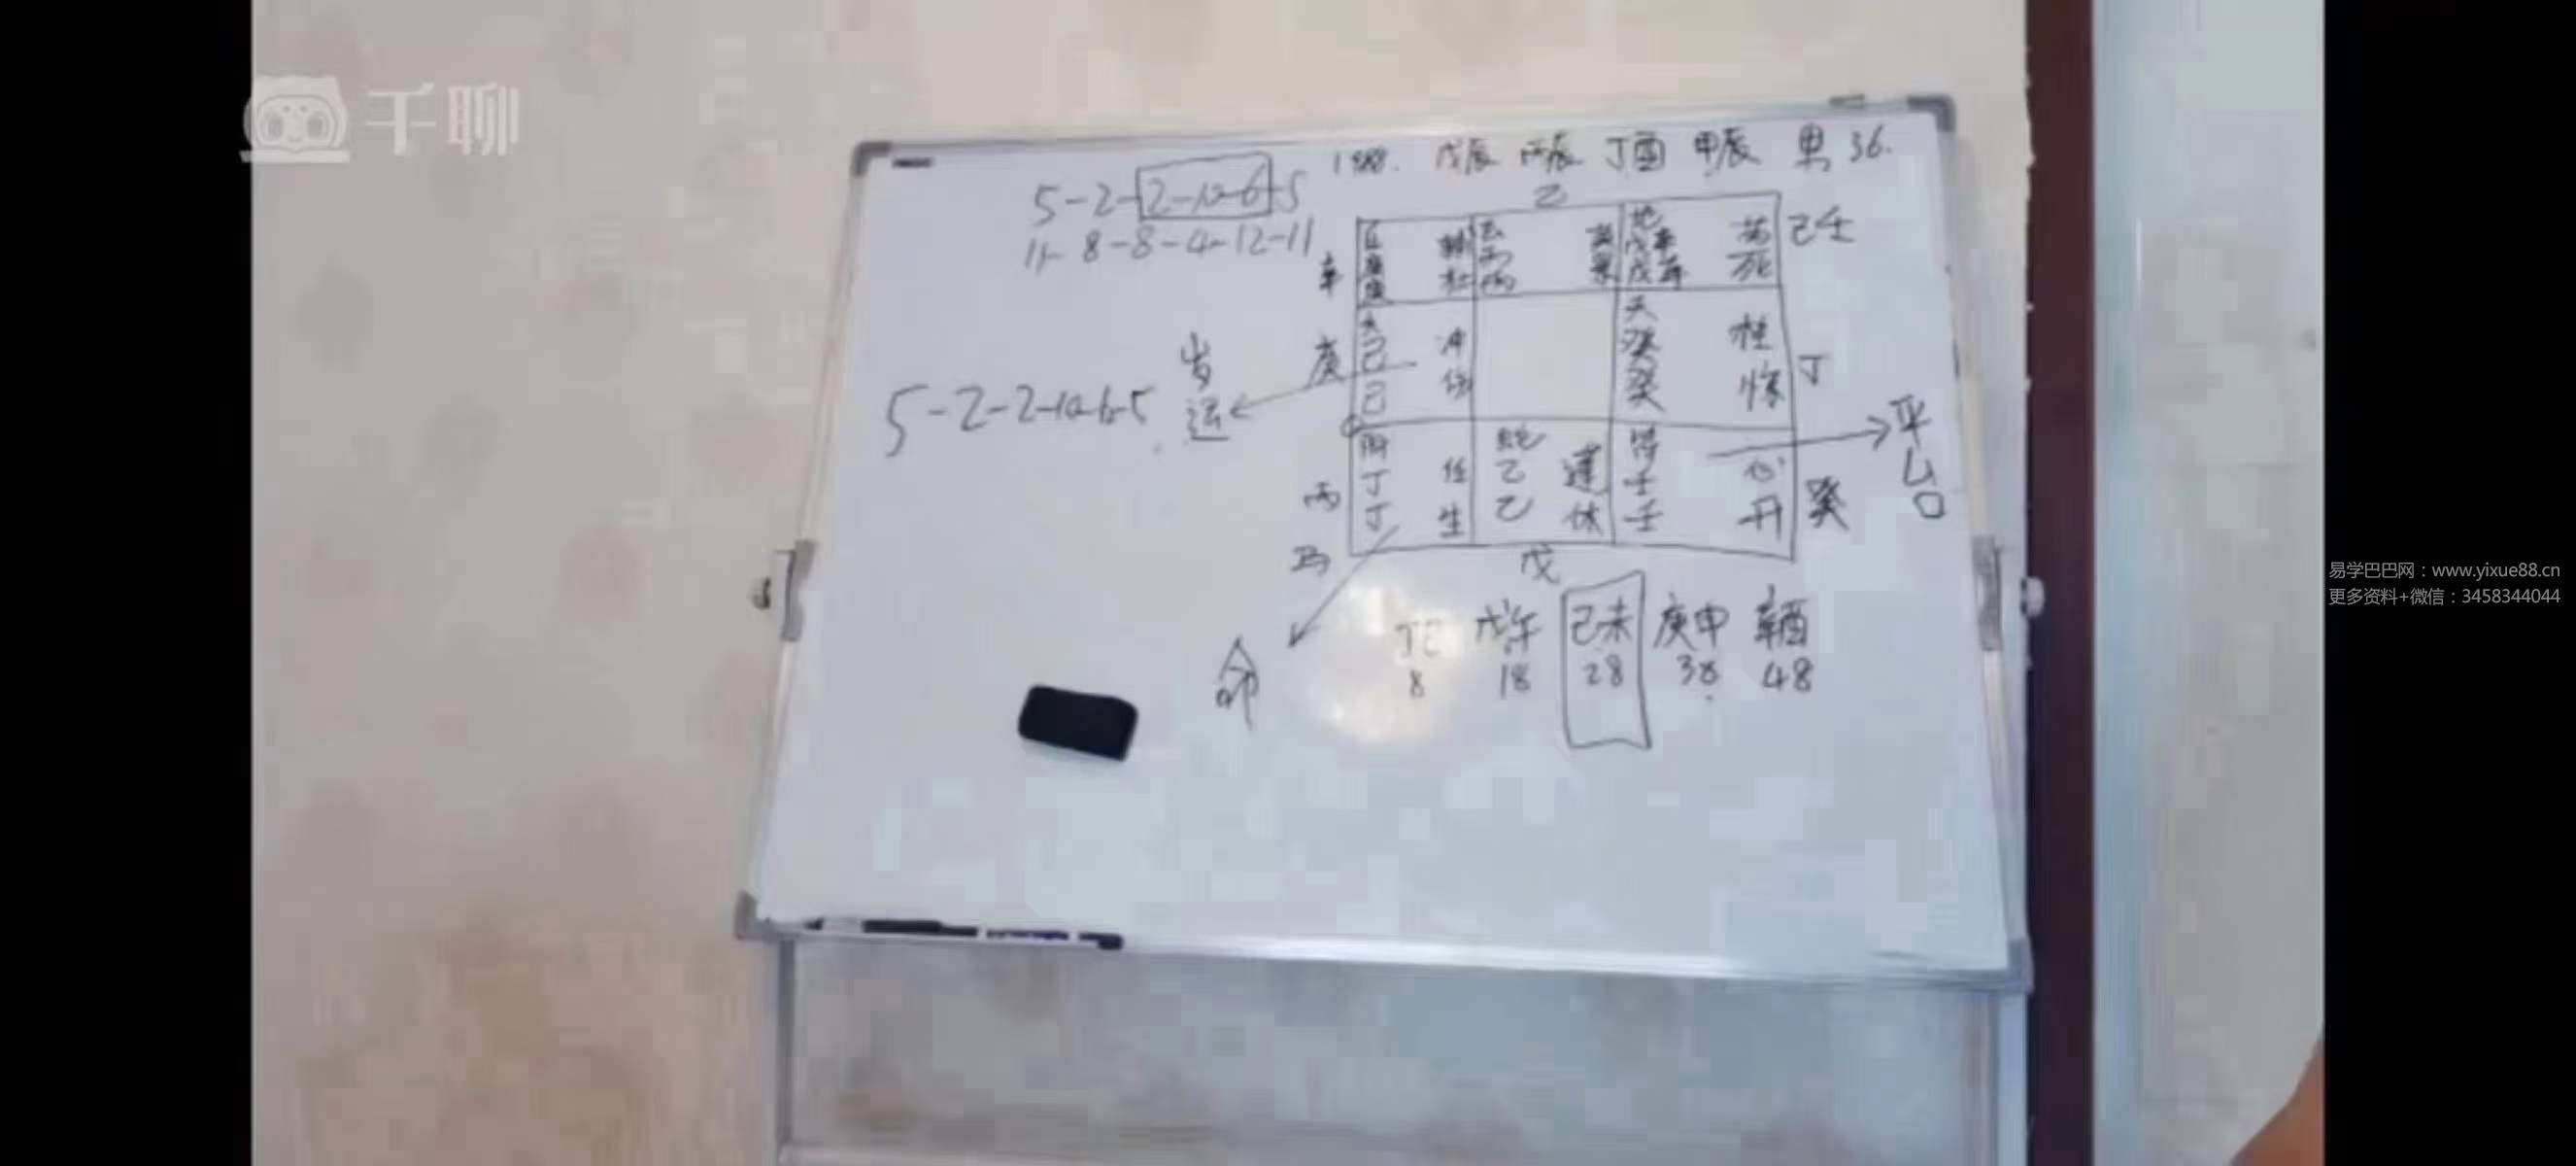 千聊
1988. 戊辰 丙辰 丁酉 甲辰 男 36.
5-2-2-10-6-5
11-8-8-4-12-11
乙
辅 杜
地
芮 死
己壬
辛
庚
己
己
冲
天
癸
癸
柱
惊
丁
岁
运
5-2-2-10-6-5
阴
丁
丁
任
生
蛇
乙
乙
蓬
休
符
壬
壬
心
开
癸
平
台
丙
马
戊
命
丁巳 戊午 己未 庚申 辛酉
8 18 28 38 48
易学巴巴网：www.yixue88.cn
更多资料+微信：3458344044